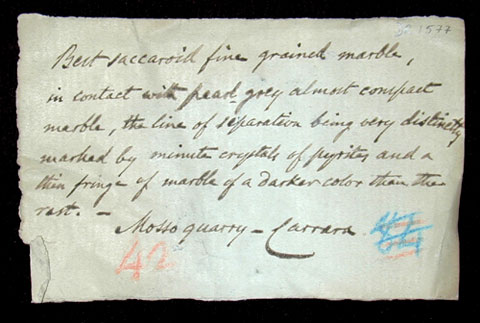 Best saccaroid fine grained marble,
in contact with pearl grey almost compact
marble, the line of separation being very distinctly
marked by minute crystals of pyrites and a
thin fringe of marble of a darker color than the
rest. —
Mosso quarry — Carrara
42
1577